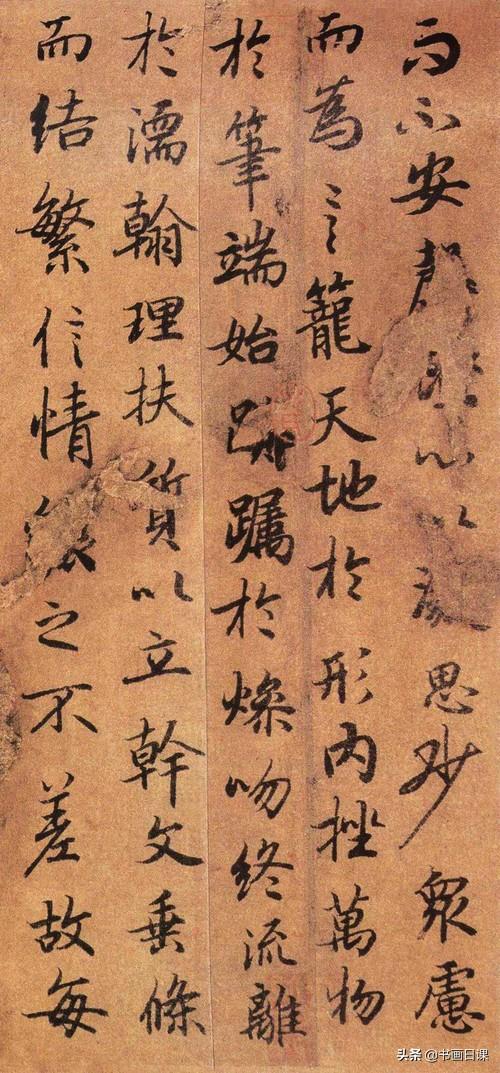 而不安心以思妙眾慮
而為言籠天地於形內挫萬物
於筆端始躅於燥吻終流離
於濡翰理扶質以立幹文垂條
而結繁信情之不差故每
头条 @书画日课